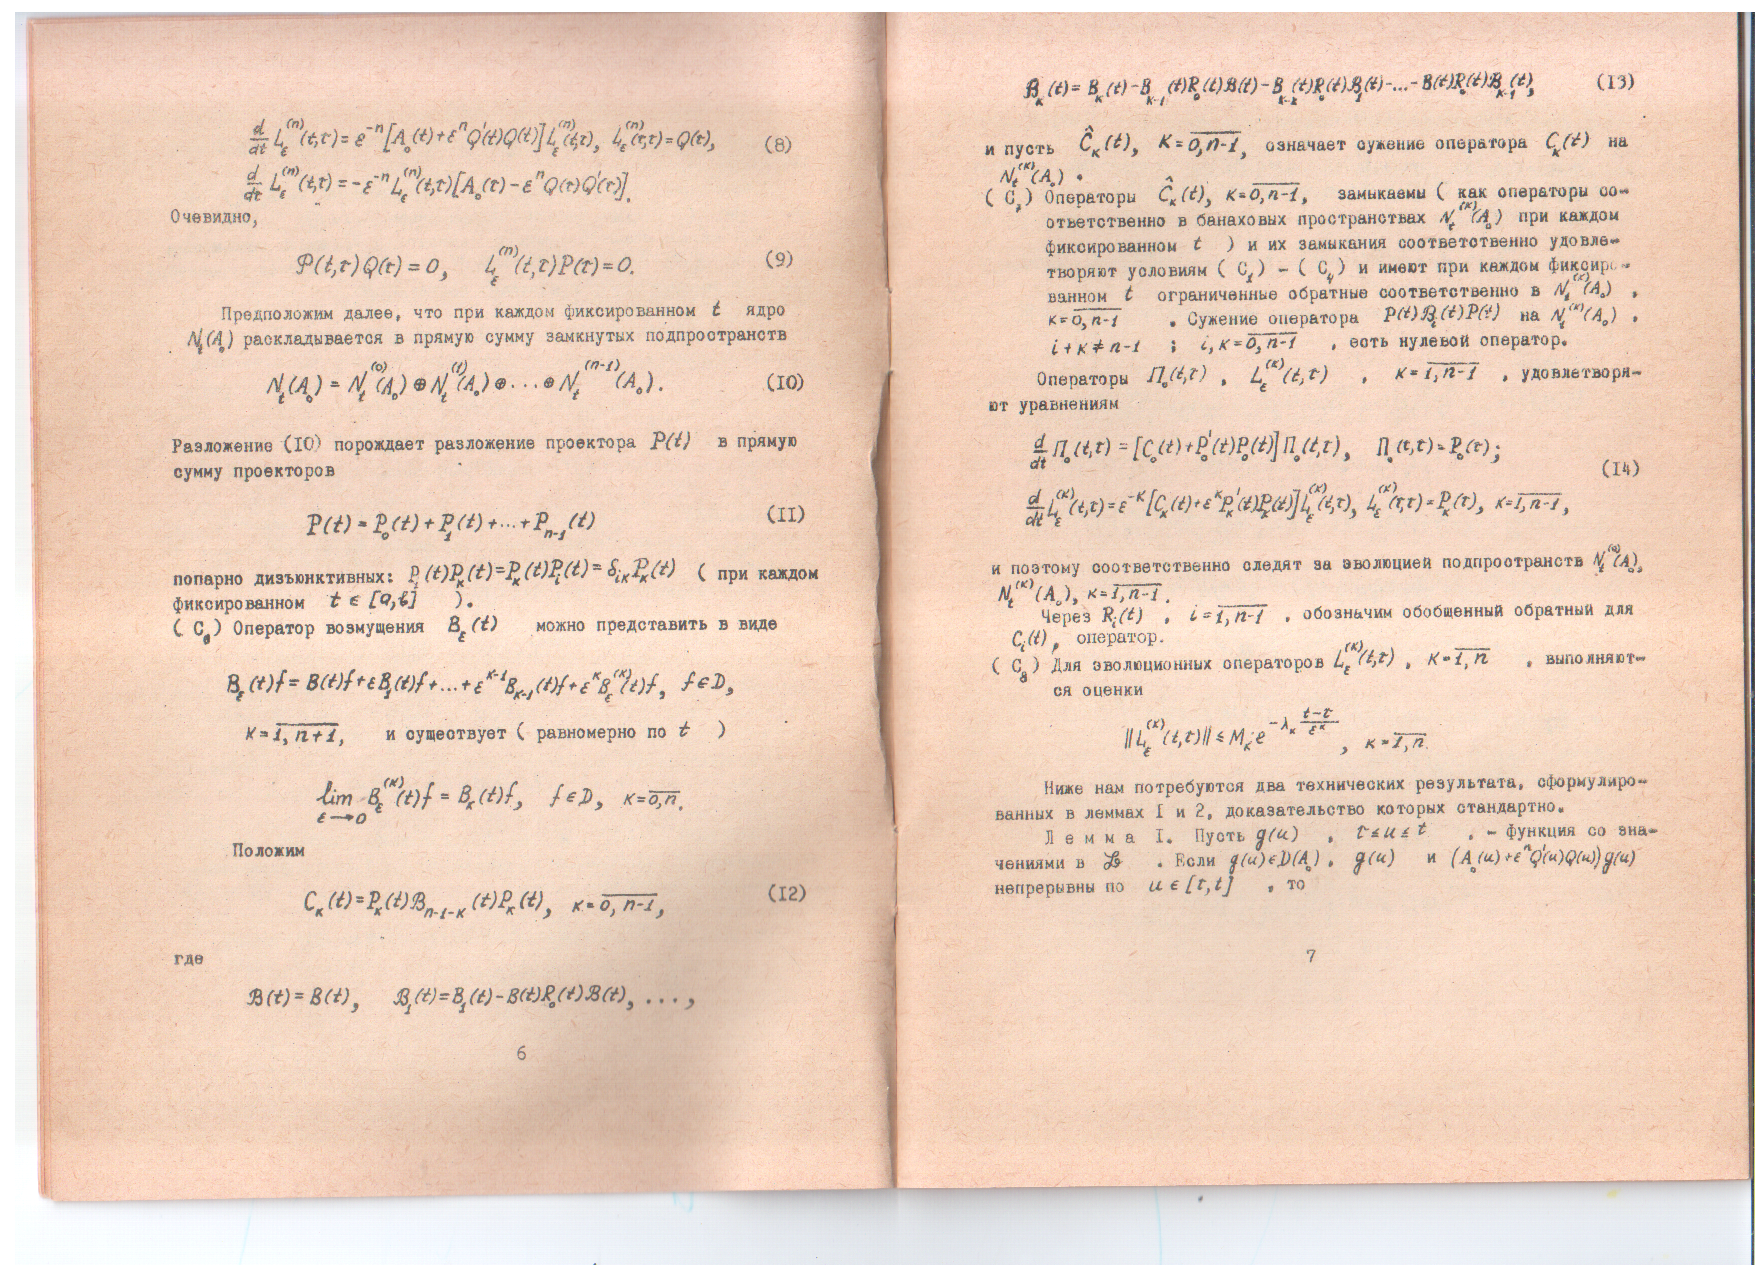 d/dt L_ε^(n)(t,τ) = ε^-n [A_0(t) + ε^n Q'(t)Q(t)] L_ε^(n)(t,τ), L_ε^(n)(τ,τ) = Q(τ), (8)
d/dt L_ε^(n)(t,τ) = -ε^-n L_ε^(n)(t,τ)[A_0(τ) - ε^n Q(τ)Q'(τ)].
Очевидно,
P(t,τ)Q(τ) = 0, L_ε^(n)(t,τ)P(τ) = 0. (9)
Предположим далее, что при каждом фиксированном t ядро
N_t(A_0) раскладывается в прямую сумму замкнутых подпространств
N_t(A_0) = N_t^(0)(A_0) ⊕ N_t^(1)(A_0) ⊕ ... ⊕ N_t^(n-1)(A_0). (I0)
Разложение (I0) порождает разложение проектора P(t) в прямую
сумму проекторов
P(t) = P_0(t) + P_1(t) + ... + P_n-1(t) (II)
попарно дизъюнктивных: P_i(t)P_κ(t) = P_κ(t)P_i(t) = δ_iκ P_κ(t) ( при каждом
фиксированном t ∈ [a,b] ).
( C_6) Оператор возмущения B_ε(t) можно представить в виде
B_ε(t)f = B(t)f + εB_1(t)f + ... + ε^κ-1 B_κ-1(t)f + ε^κ B_ε^(κ)(t)f, f ∈ D,
κ = 1, n+1, и существует ( равномерно по t )
lim_ε→0 B_ε^(κ)(t)f = B_κ(t)f, f ∈ D, κ = 0,n.
Положим
C_κ(t) = P_κ(t)ℬ_n-1-κ(t)P_κ(t), κ = 0, n-1, (I2)
где
ℬ(t) = B(t), ℬ_1(t) = B_1(t) - B(t)R_0(t)ℬ(t), ...,
6
ℬ_κ(t) = B_κ(t) - B_κ-1(t)R_0(t)ℬ(t) - B_κ-2(t)R_0(t)ℬ_1(t) - ... - B(t)R_0(t)ℬ_κ-1(t), (I3)
и пусть Ĉ_κ(t), κ = 0,n-1, означает сужение оператора C_κ(t) на
N_t^(κ)(A_0) .
( C_7) Операторы Ĉ_κ(t), κ = 0,n-1, замыкаемы ( как операторы со-
ответственно в банаховых пространствах N_t^(κ)(A_0) при каждом
фиксированном t ) и их замыкания соответственно удовле-
творяют условиям ( C_1) - ( C_4) и имеют при каждом фиксиро-
ванном t ограниченные обратные соответственно в N_t^(κ)(A_0) ,
κ = 0, n-1 . Сужение оператора P(t)ℬ_i(t)P(t) на N_t^(κ)(A_0) ,
i + κ ≠ n-1 ; i, κ = 0, n-1 , есть нулевой оператор.
Операторы Π_0(t,τ) , L_ε^(κ)(t,τ) , κ = 1, n-1 , удовлетворя-
ют уравнениям
d/dt Π_0(t,τ) = [C_0(t) + P_0'(t)P_0(t)] Π_0(t,τ), Π_0(τ,τ) = P_0(τ);
(I4)
d/dt L_ε^(κ)(t,τ) = ε^-κ [C_κ(t) + ε^κ P_κ'(t)P_κ(t)] L_ε^(κ)(t,τ), L_ε^(κ)(τ,τ) = P_κ(τ), κ = 1, n-1,
и поэтому соответственно следят за эволюцией подпространств N_t^(0)(A_0),
N_t^(κ)(A_0), κ = 1, n-1.
Через R_i(t) , i = 1, n-1 , обозначим обобщенный обратный для
C_i(t), оператор.
( C_8) Для эволюционных операторов L_ε^(κ)(t,τ) , κ = 1, n , выполняют-
ся оценки
‖L_ε^(κ)(t,τ)‖ ≤ M_κ e^-λ_κ (t-τ)/ε^κ , κ = 1, n.
Ниже нам потребуются два технических результата, сформулиро-
ванных в леммах I и 2, доказательство которых стандартно.
Л е м м а I. Пусть g(u) , τ ≤ u ≤ t , - функция со зна-
чениями в ℬ . Если g(u) ∈ D(A_0) , g(u) и (A_0(u) + ε^n Q'(u)Q(u)) g(u)
непрерывны по u ∈ [τ, t] , то
7